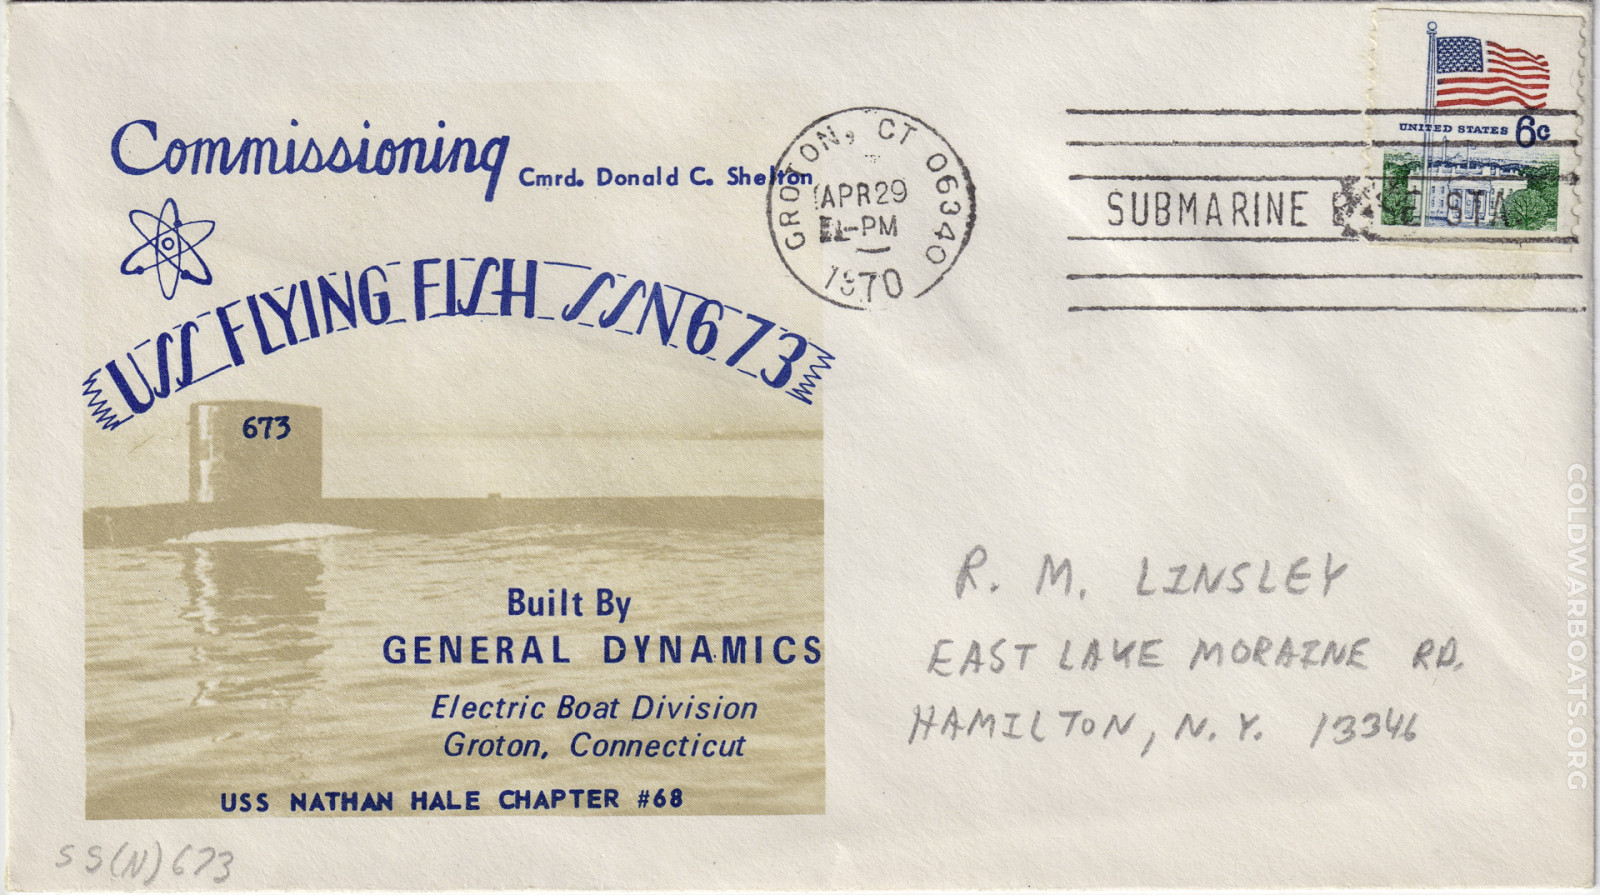 Commissioning
Cmrd. Donald C. Shelton
USS FLYING FISH SSN673
673
Built By
GENERAL DYNAMICS
Electric Boat Division
Groton, Connecticut
USS NATHAN HALE CHAPTER #68
SS(N)673
GROTON, CT 06340
APR 29
-PM
1970
SUBMARINE
STA
UNITED STATES 6c
R. M. LINSLEY
EAST LAKE MORAINE RD.
HAMILTON, N.Y. 13346
COLDWARBOATS.ORG